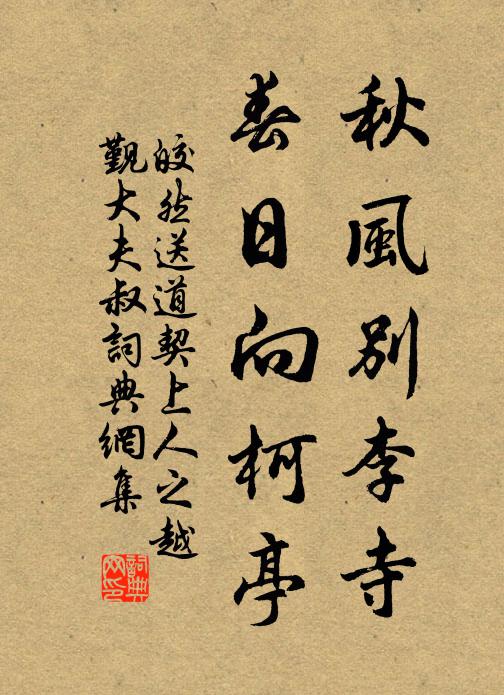 秋風別李寺
春日向柯亭
皎然送道契上人之越
觐大夫叔詞典網集
詞典网印